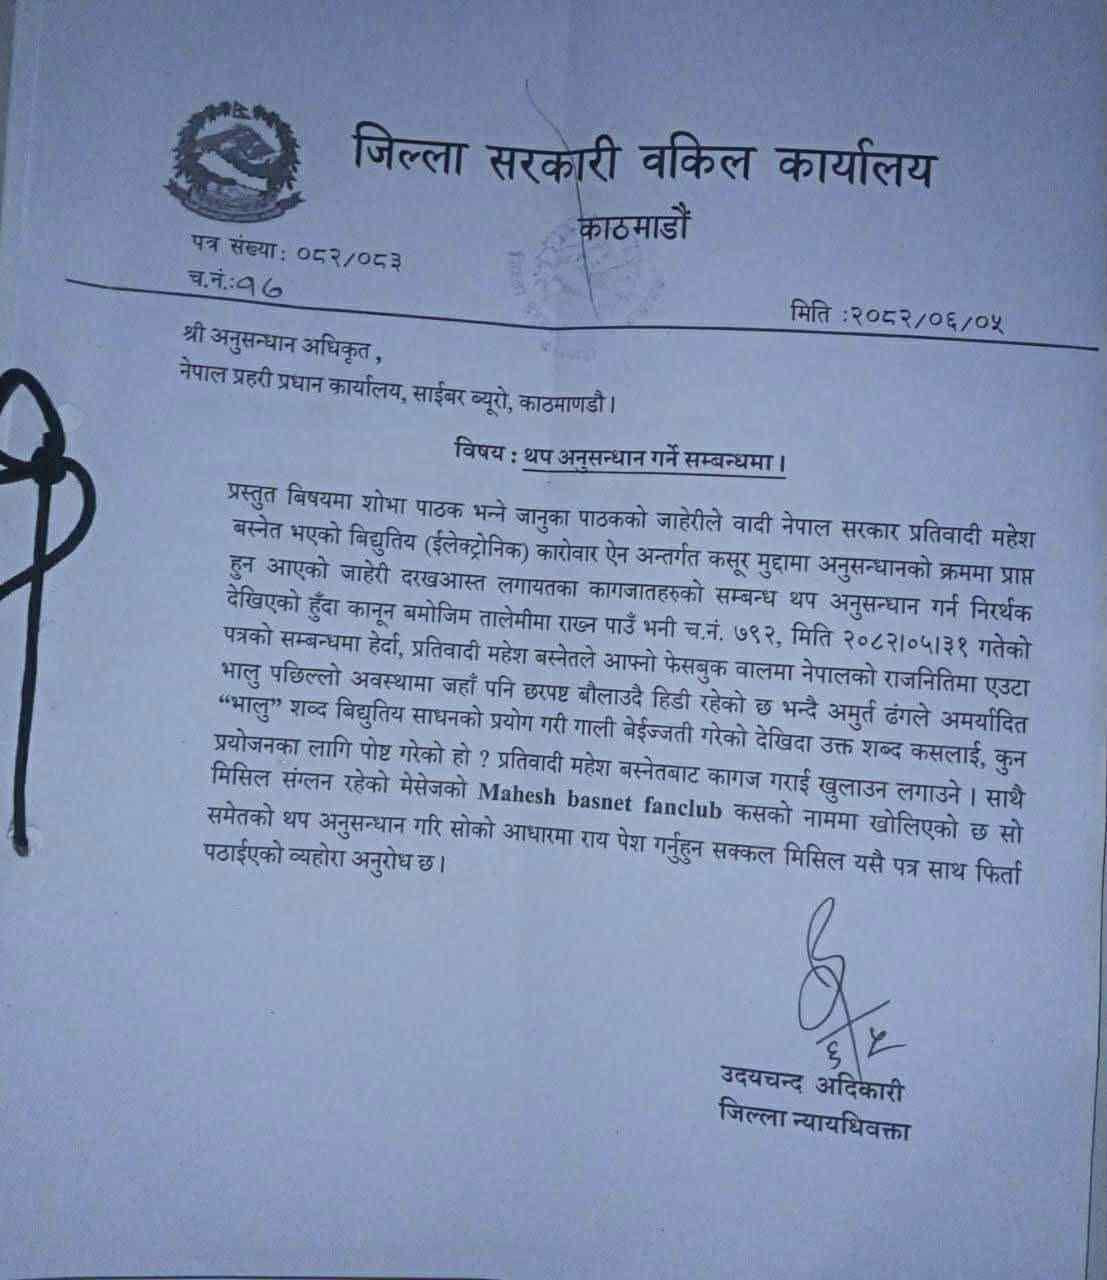 जिल्ला सरकारी वकिल कार्यालय
काठमाडौं
पत्र संख्या: ०८२/०८३
च.नं.:१७
मिति :२०८२/०६/०५
श्री अनुसन्धान अधिकृत,
नेपाल प्रहरी प्रधान कार्यालय, साईबर ब्यूरो, काठमाण्डौ।
विषय : थप अनुसन्धान गर्ने सम्बन्धमा।
प्रस्तुत बिषयमा शोभा पाठक भन्ने जानुका पाठकको जाहेरीले वादी नेपाल सरकार प्रतिवादी महेश
बस्नेत भएको बिद्युतिय (ईलेक्ट्रोनिक) कारोवार ऐन अन्तर्गत कसूर मुद्दामा अनुसन्धानको क्रममा प्राप्त
हुन आएको जाहेरी दरखआस्त लगायतका कागजातहरुको सम्बन्ध थप अनुसन्धान गर्न निरर्थक
देखिएको हुँदा कानून बमोजिम तालेमीमा राख्न पाउँ भनी च.नं. ७९२, मिति २०८२।०५।३१ गतेको
पत्रको सम्बन्धमा हेर्दा, प्रतिवादी महेश बस्नेतले आफ्नो फेसबुक वालमा नेपालको राजनितिमा एउटा
भालु पछिल्लो अवस्थामा जहाँ पनि छरपष्ट बौलाउदै हिडी रहेको छ भन्दै अमुर्त ढंगले अमर्यादित
“भालु” शव्द बिद्युतिय साधनको प्रयोग गरी गाली बेईज्जती गरेको देखिदा उक्त शब्द कसलाई, कुन
प्रयोजनका लागि पोष्ट गरेको हो ? प्रतिवादी महेश बस्नेतबाट कागज गराई खुलाउन लगाउने । साथै
मिसिल संग्लन रहेको मेसेजको Mahesh basnet fanclub कसको नाममा खोलिएको छ सो
समेतको थप अनुसन्धान गरि सोको आधारमा राय पेश गर्नुहुन सक्कल मिसिल यसै पत्र साथ फिर्ता
पठाईएको व्यहोरा अनुरोध छ।
६/५
उदयचन्द अदिकारी
जिल्ला न्यायधिवक्ता